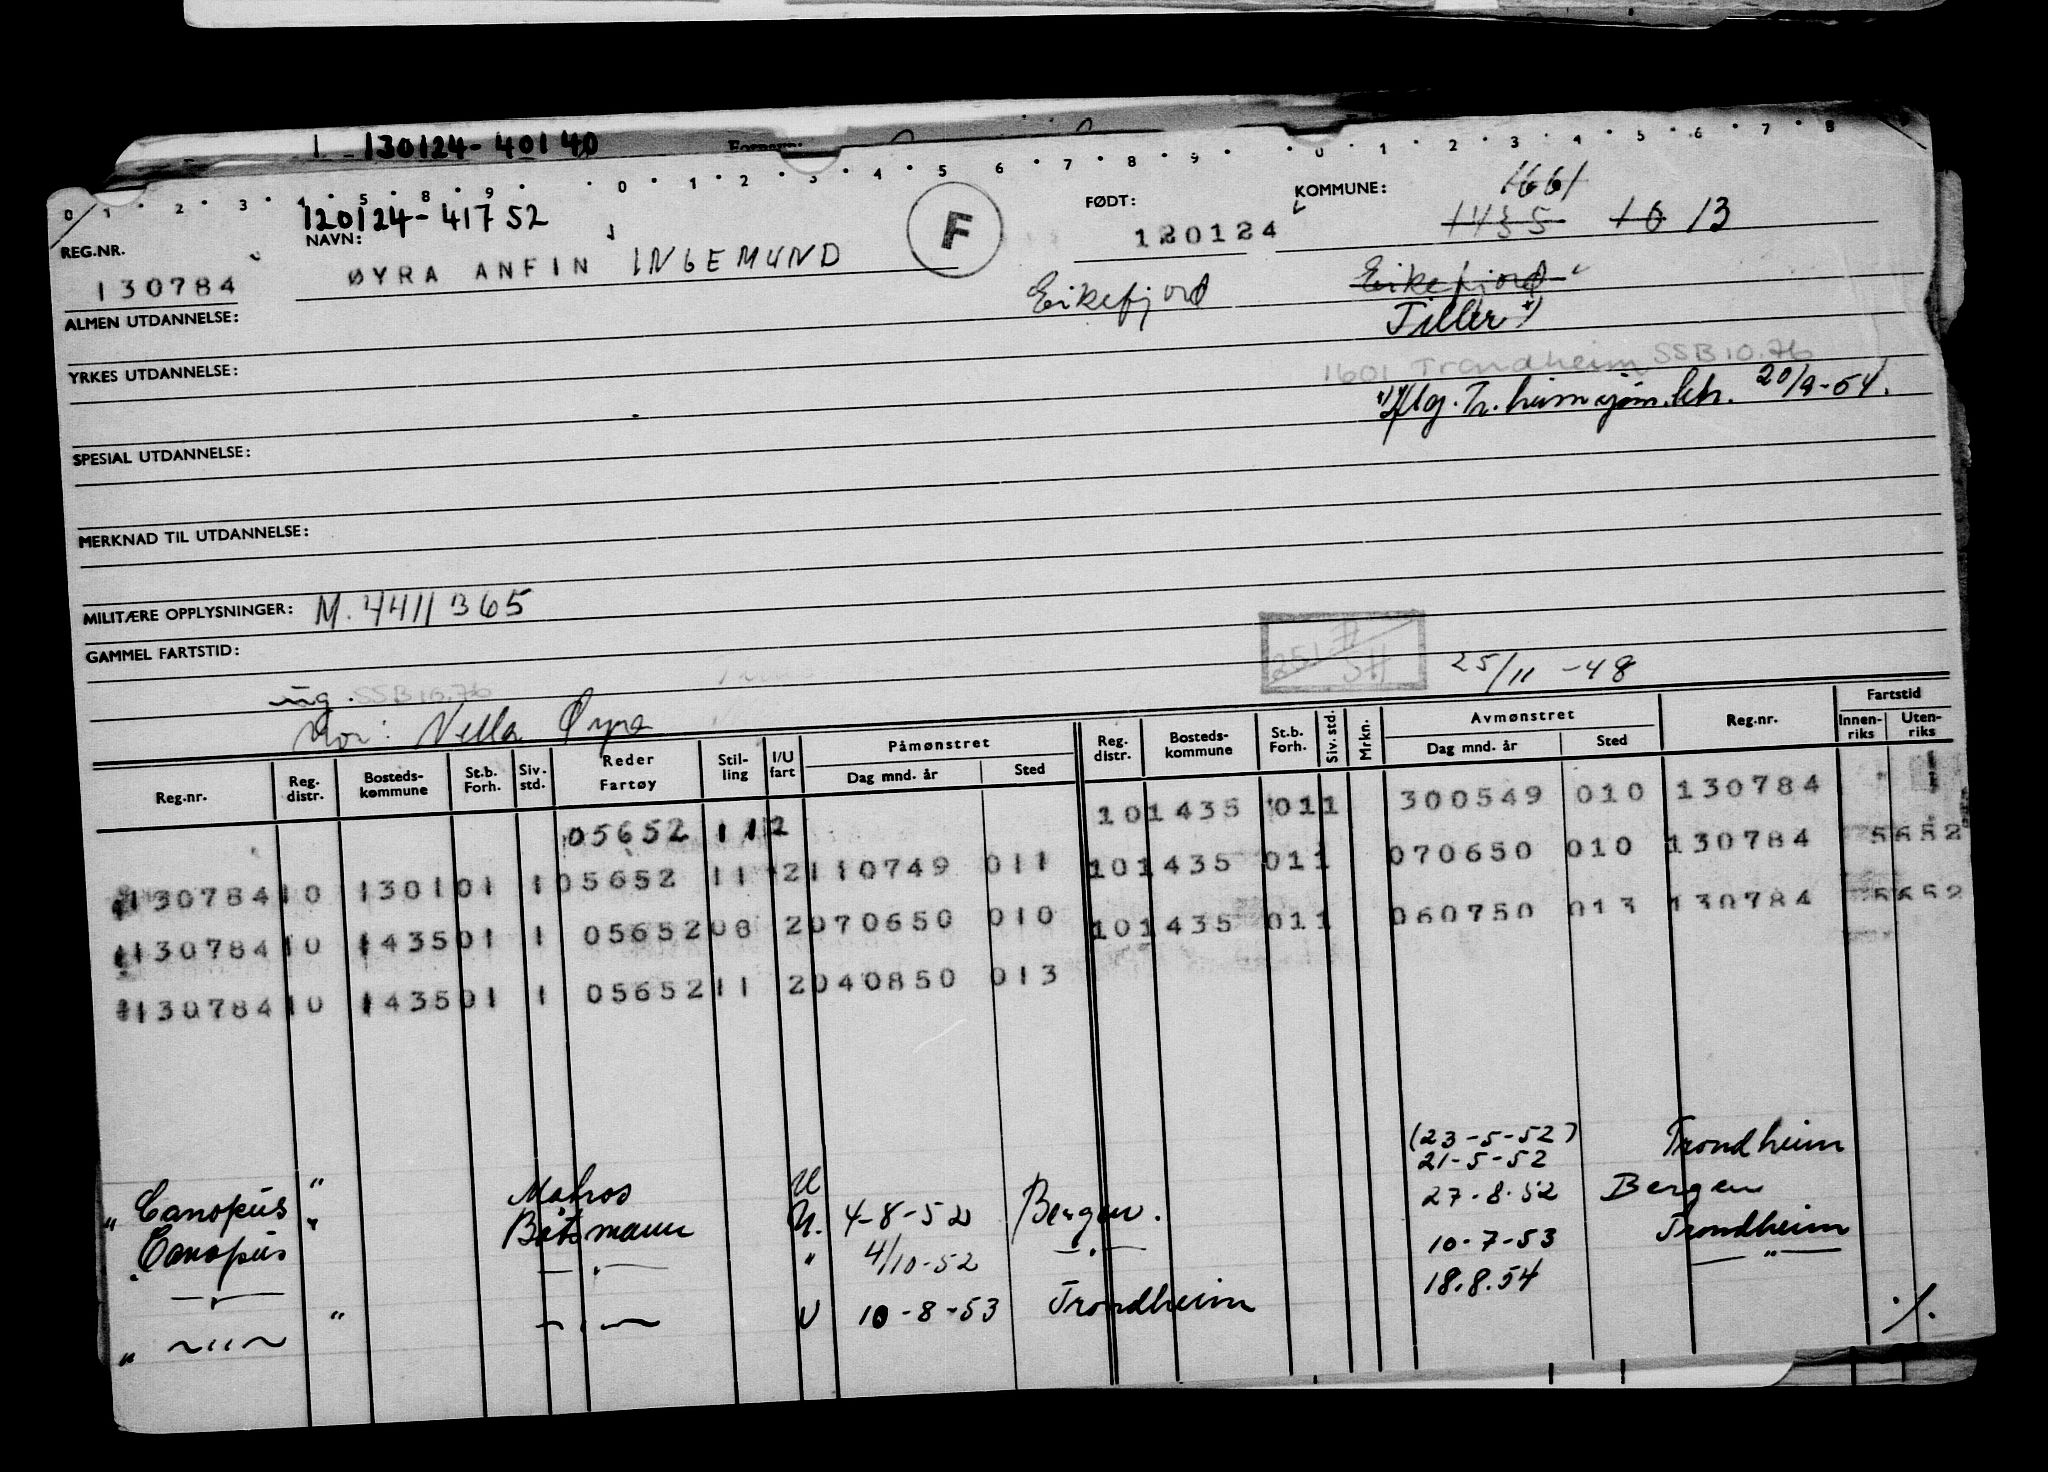 130124-40140
Fornavn:
0 1 2 3 4 5 8 9 0 1 2 3 4 5 6 7 8 9 0 1 2 3 4 5 6 7 8
REG.NR. 130784
120124-41752
NAVN: ØYRA ANFIN INGEMUND
F
FØDT: 120124
Eikefjord
KOMMUNE: 1661
1435 16 13
Eikefjord
Tiller *)
1601 Trondheim SSB 10.76
20/9-54.
ALMEN UTDANNELSE:
YRKES UTDANNELSE:
SPESIAL UTDANNELSE:
MERKNAD TIL UTDANNELSE:
MILITÆRE OPPLYSNINGER: M. 4411365
GAMMEL FARTSTID:
25/11-48
ug. SSB 10.76
Mor: Nella Øyra
Reg.nr. Reg. distr. Bosteds-kommune St.b. Forh. Siv. std. Reder Fartøy Stil-ling I/U fart Påmønstret Dag mnd. år Sted Reg. distr. Bosteds-kommune St.b. Forh. Siv. std. Mrkn. Avmønstret Dag mnd. år Sted Reg.nr. Fartstid Innen-riks Uten-riks
05652 11 2 10 1435 01 1 300549 010 130784
130784 10 1301 01 1 05652 11 2 110749 011 10 1435 01 1 070650 010 130784 5652
130784 10 1435 01 1 05652 08 2 070650 010 10 1435 01 1 060750 013 130784 5652
130784 10 1435 01 1 05652 11 2 040850 013
(23-5-52)
Canopus " Matros U 21-5-52 Trondheim
" Canopus " Båtsmann U. 4-8-52 Bergen. 27-8-52 Bergen
" — " — — " — " 4/10-52 — " — 10-7-53 Trondheim
" ~ " ~ " — " — U 10-8-53 Trondheim 18.8.54 — " —
./.